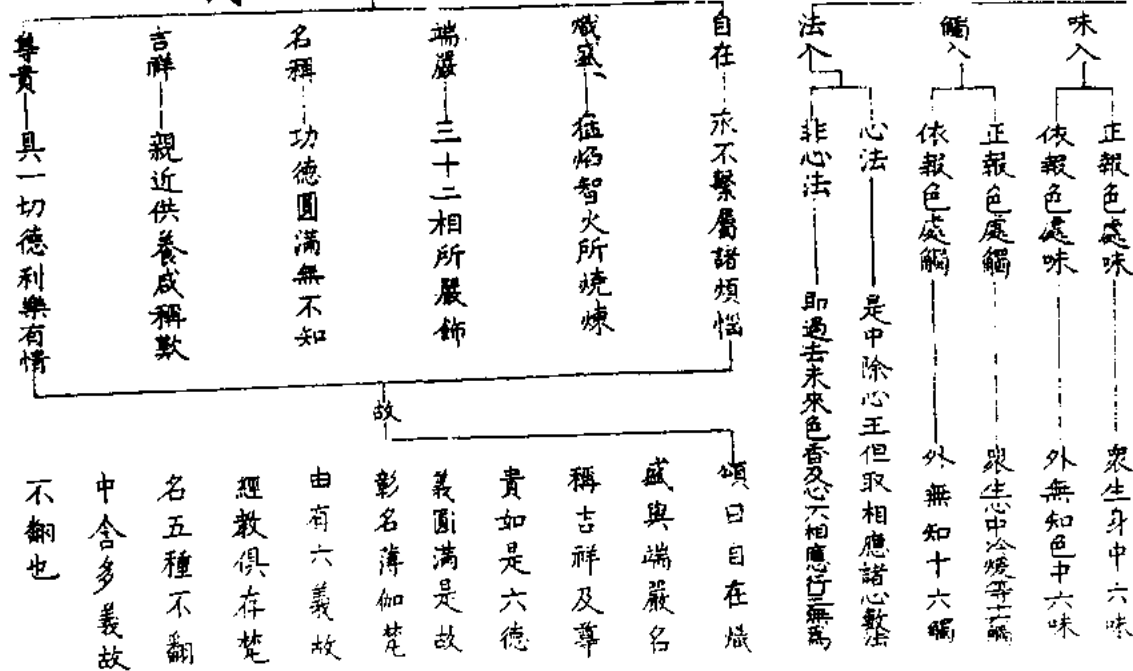 味入
正報色處味
衆生身中六味
依報色處味
外無知色中六味
觸入
正報色處觸
依報色處觸
外無知十六觸
法入
心法
是中除心王但取相應諸心數法
非心法
即過去未來色香及心不相應行三無爲
自在
永不繫屬諸煩惱
熾盛
猛焰智火所燒煉
端嚴
三十二相所嚴飾
名稱
功德圓滿無不知
吉祥
親近供養咸稱歎
尊貴
具一切德利樂有情
故
頌曰自在熾
盛與端嚴名
稱吉祥及尊
貴如是六德
義圓滿是故
彰名薄伽梵
由有六義故
經教俱存梵
名五種不翻
中含多義故
不翻也